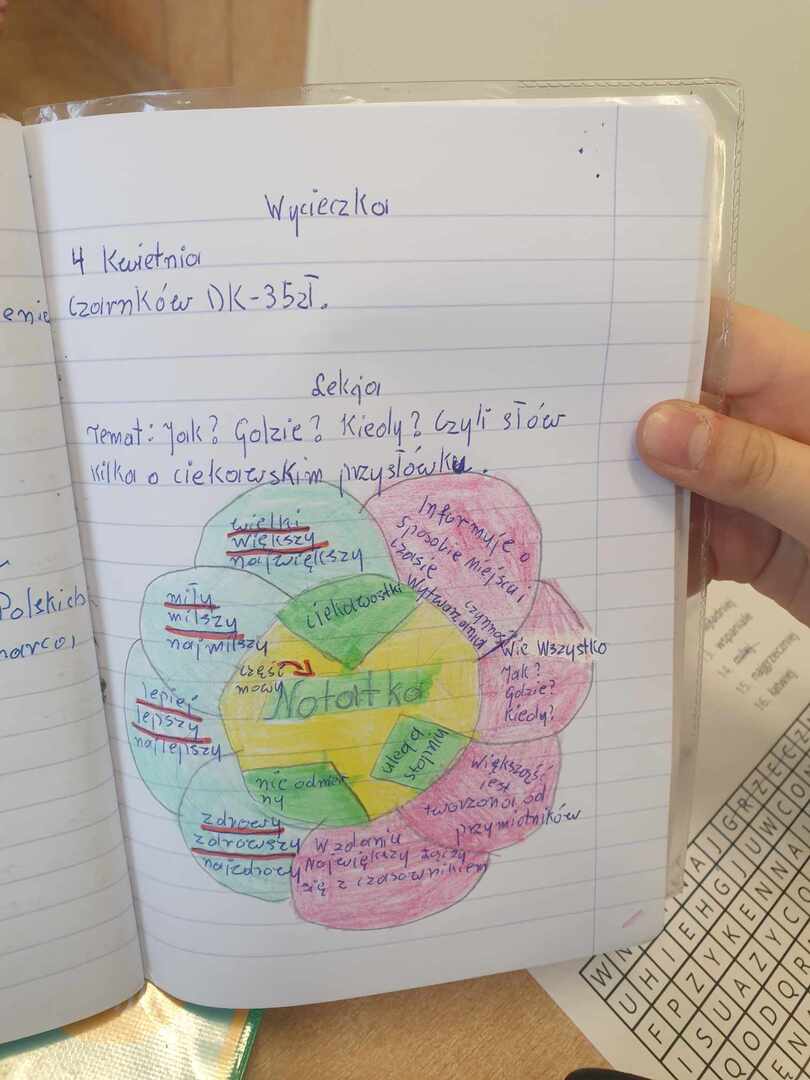 Wycieczka
4 Kwietnia
Czarnków DK-35zł.
Lekcja
Temat: Jak? Gdzie? Kiedy? Czyli słów
kilka o ciekawskim przysłówku.
wielki
większy
największy
miły
milszy
najmilszy
lepiej
lepszy
najlepszy
zdrowy
zdrowszy
najzdrowy
Informuje o
sposobie miejscu i
czasie
czynność
Wie wszystko
Jak?
Gdzie?
Kiedy?
Większość
jest
tworzona od
przymiotników
W zdaniu
Największy łączy
się z czasownikiem
ciekawostki
część
mowy
Notatka
ulega
stopniu
nie odmien
ny
enie
Polskich
marca,
15. najgrzeczniej
16. łatwiej